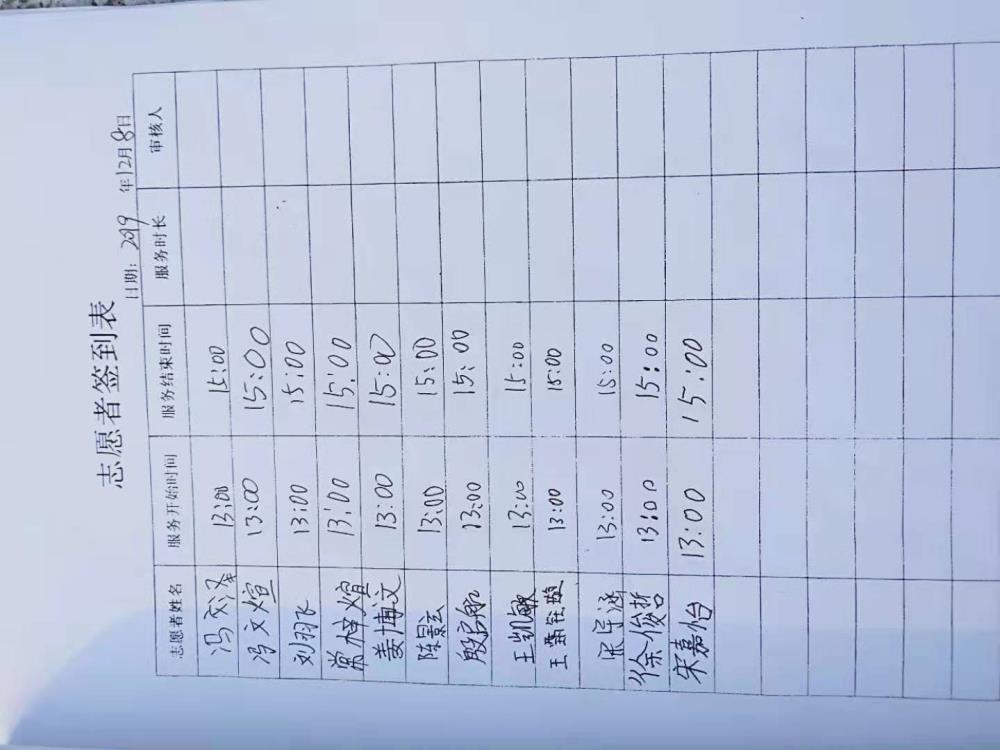 志愿者签到表
日期：2019年12月8日
志愿者姓名 服务开始时间 服务结束时间 服务时长 审核人
冯文泽 13:00 15:00
冯文煊 13:00 15:00
刘羽飞 13:00 15:00
常梓煊 13:00 15:00
姜博文 13:00 15:00
陈景云 13:00 15:00
殷启航 13:00 15:00
王凯敏 13:00 15:00
王 13:00 15:00
宋宇涵 13:00 15:00
徐俊哲 13:00 15:00
宋嘉怡 13:00 15:00